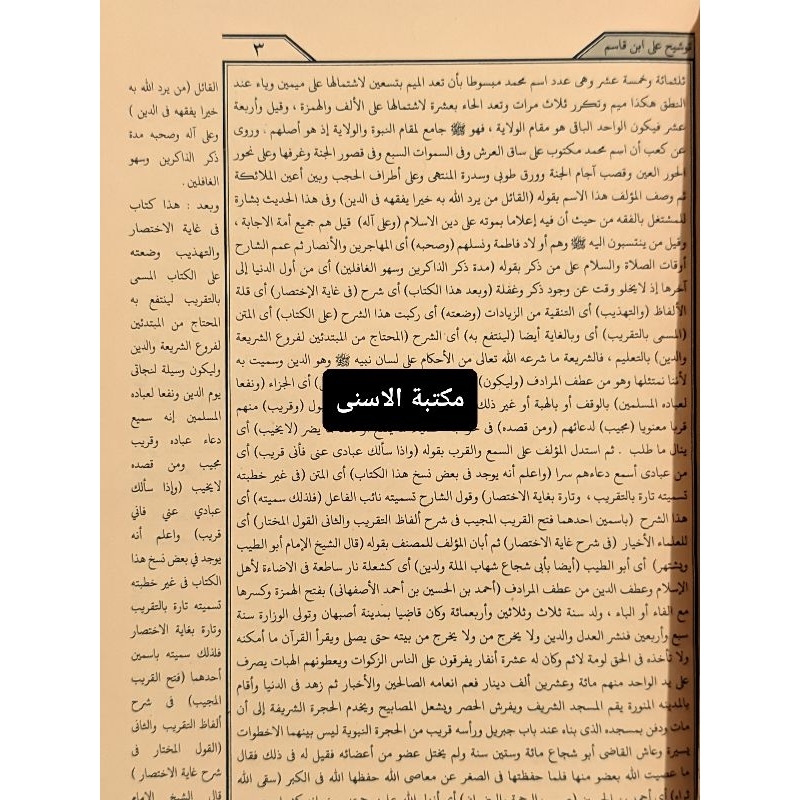 توشيح على ابن قاسم
٣
ثلثمائة وخمسة عشر وهى عدد اسم محمد مبسوطا بأن تعد الميم بتسعين لاشتمالها على ميمين وياء عند
النطق هكذا ميم وتكرر ثلاث مرات وتعد الحاء بعشرة لاشتمالها على الألف والهمزة ، وقيل وأربعة
عشر فيكون الواحد الباقى هو مقام الولاية ، فهو ﷺ جامع لمقام النبوة والولاية إذ هو أصلهم . وروى
عن كعب أن اسم محمد مكتوب على ساق العرش وفى السموات السبع وفى قصور الجنة وغرفها وعلى نحور
الحور العين وقصب آجام الجنة وورق طوبى وسدرة المنتهى وعلى أطراف الحجب وبين أعين الملائكة
ثم وصف المؤلف هذا الاسم بقوله (القائل من يرد الله به خيرا يفقهه فى الدين) وفى هذا الحديث بشارة
للمشتغل بالفقه من حيث أن فيه إعلاما بموته على دين الاسلام (وعلى آله) قيل هم جميع أمة الاجابة ،
وقيل من ينتسبون اليه ﷺ وهم أولاد فاطمة ونسلهم (وصحبه) أى المهاجرين والأنصار ثم عمم الشارح
أوقات الصلاة والسلام على من ذكر بقوله (مدة ذكر الذاكرين وسهو الغافلين) أى من أول الدنيا إلى
آخرها إذ لا يخلو وقت عن وجود ذكر وغفلة (وبعد هذا الكتاب) أى شرح (فى غاية الإختصار) أى قلة
الألفاظ (والتهذيب) أى التنقية من الزيادات (وضعته) أى ركبت هذا الشرح (على الكتاب) أى المتن
(المسمى بالتقريب) أى وبالغاية أيضا (لينتفع به) أى الشرح (المحتاج من المبتدئين لفروع الشريعة
والدين) بالتعليم ، فالشريعة ما شرعه الله تعالى من الأحكام على لسان نبيه ﷺ وهو الدين وسميت به
لأننا نمتثلها وهو من عطف المرادف (وليكون) أى الجزاء (ونفعا
لعباده المسلمين) بالوقف أو بالهبة أو غير ذلك (وقريب) منهم
قربا معنويا (مجيب) لدعائهم (ومن قصده) فى يضر (لايخيب) أى
ينال ما طلب . ثم استدل المؤلف على السمع والقرب بقوله (وإذا سألك عبادى عنى فأنى قريب) أى
من عبادى أسمع دعاءهم سرا (واعلم أنه يوجد فى بعض نسخ هذا الكتاب) أى المتن (فى غير خطبته
تسميته تارة بالتقريب ، وتارة بغاية الاختصار) وقول الشارح تسميته نائب الفاعل (فلذلك سميته) أى
هذا الشرح (باسمين احدهما فتح القريب المجيب فى شرح ألفاظ التقريب والثانى القول المختار) أى
للعلماء الأخيار (فى شرح غاية الاختصار) ثم أبان المؤلف للمصنف بقوله (قال الشيخ الإمام أبو الطيب
ويشتهر) أى أبو الطيب (أيضا بأبى شجاع شهاب الملة والدين) أى كشعلة نار ساطعة فى الاضاءة لأهل
الإسلام وعطف الدين من عطف المرادف (أحمد بن الحسين بن أحمد الأصفهانى) بفتح الهمزة وكسرها
مع الفاء أو الباء ، ولد سنة ثلاث وثلاثين وأربعمائة وكان قاضيا بمدينة أصبهان وتولى الوزارة سنة
سبع وأربعين فنشر العدل والدين ولا يخرج من ولا يخرج من بيته حتى يصلى ويقرأ القرآن ما أمكنه
ولا تأخذه فى الحق لومة لائم وكان له عشرة أنفار يفرقون على الناس الزكوات ويعطونهم الهبات يصرف
على يد الواحد منهم مائة وعشرين ألف دينار فعم انعامه الصالحين والأخبار ثم زهد فى الدنيا وأقام
بالمدينة المنورة يقم المسجد الشريف ويفرش الحصر ويشعل المصابيح ويخدم الحجرة الشريفة إلى أن
مات ودفن بمسجده الذى بناه عند باب جبريل ورأسه قريب من الحجرة النبوية ليس بينهما الاخطوات
يسيرة وعاش القاضى أبو شجاع مائة وستين سنة ولم يختل عضو من أعضائه فقيل له فى ذلك فقال
ما عصيت الله بعضو منها فلما حفظتها فى الصغر عن معاصى الله حفظها الله فى الكبر (سقى الله
القائل (من يرد الله به
خيرا يفقهه فى الدين )
وعلى آله وصحبه مدة
ذكر الذاكرين وسهو
الغافلين .
وبعد : هذا كتاب
فى غاية الاختصار
والتهذيب وضعته
على الكتاب المسمى
بالتقريب لينتفع به
المحتاج من المبتدئين
لفروع الشريعة والدين
وليكون وسيلة لنجاتى
يوم الدين ونفعا لعباده
المسلمين إنه سميع
دعاء عباده وقريب
مجيب ومن قصده
لايخيب (وإذا سألك
عبادي عني فاني
قريب) واعلم أنه
يوجد في بعض نسخ هذا
الكتاب فى غير خطبته
تسميته تارة بالتقريب
وتارة بغاية الاختصار
فلذلك سميته باسمين
أحدهما (فتح القريب
المجيب) فى شرح
ألفاظ التقريب والثانى
(القول المختار فى
شرح غاية الاختصار )
قال الشيخ الإمام
مكتبة الاسنى